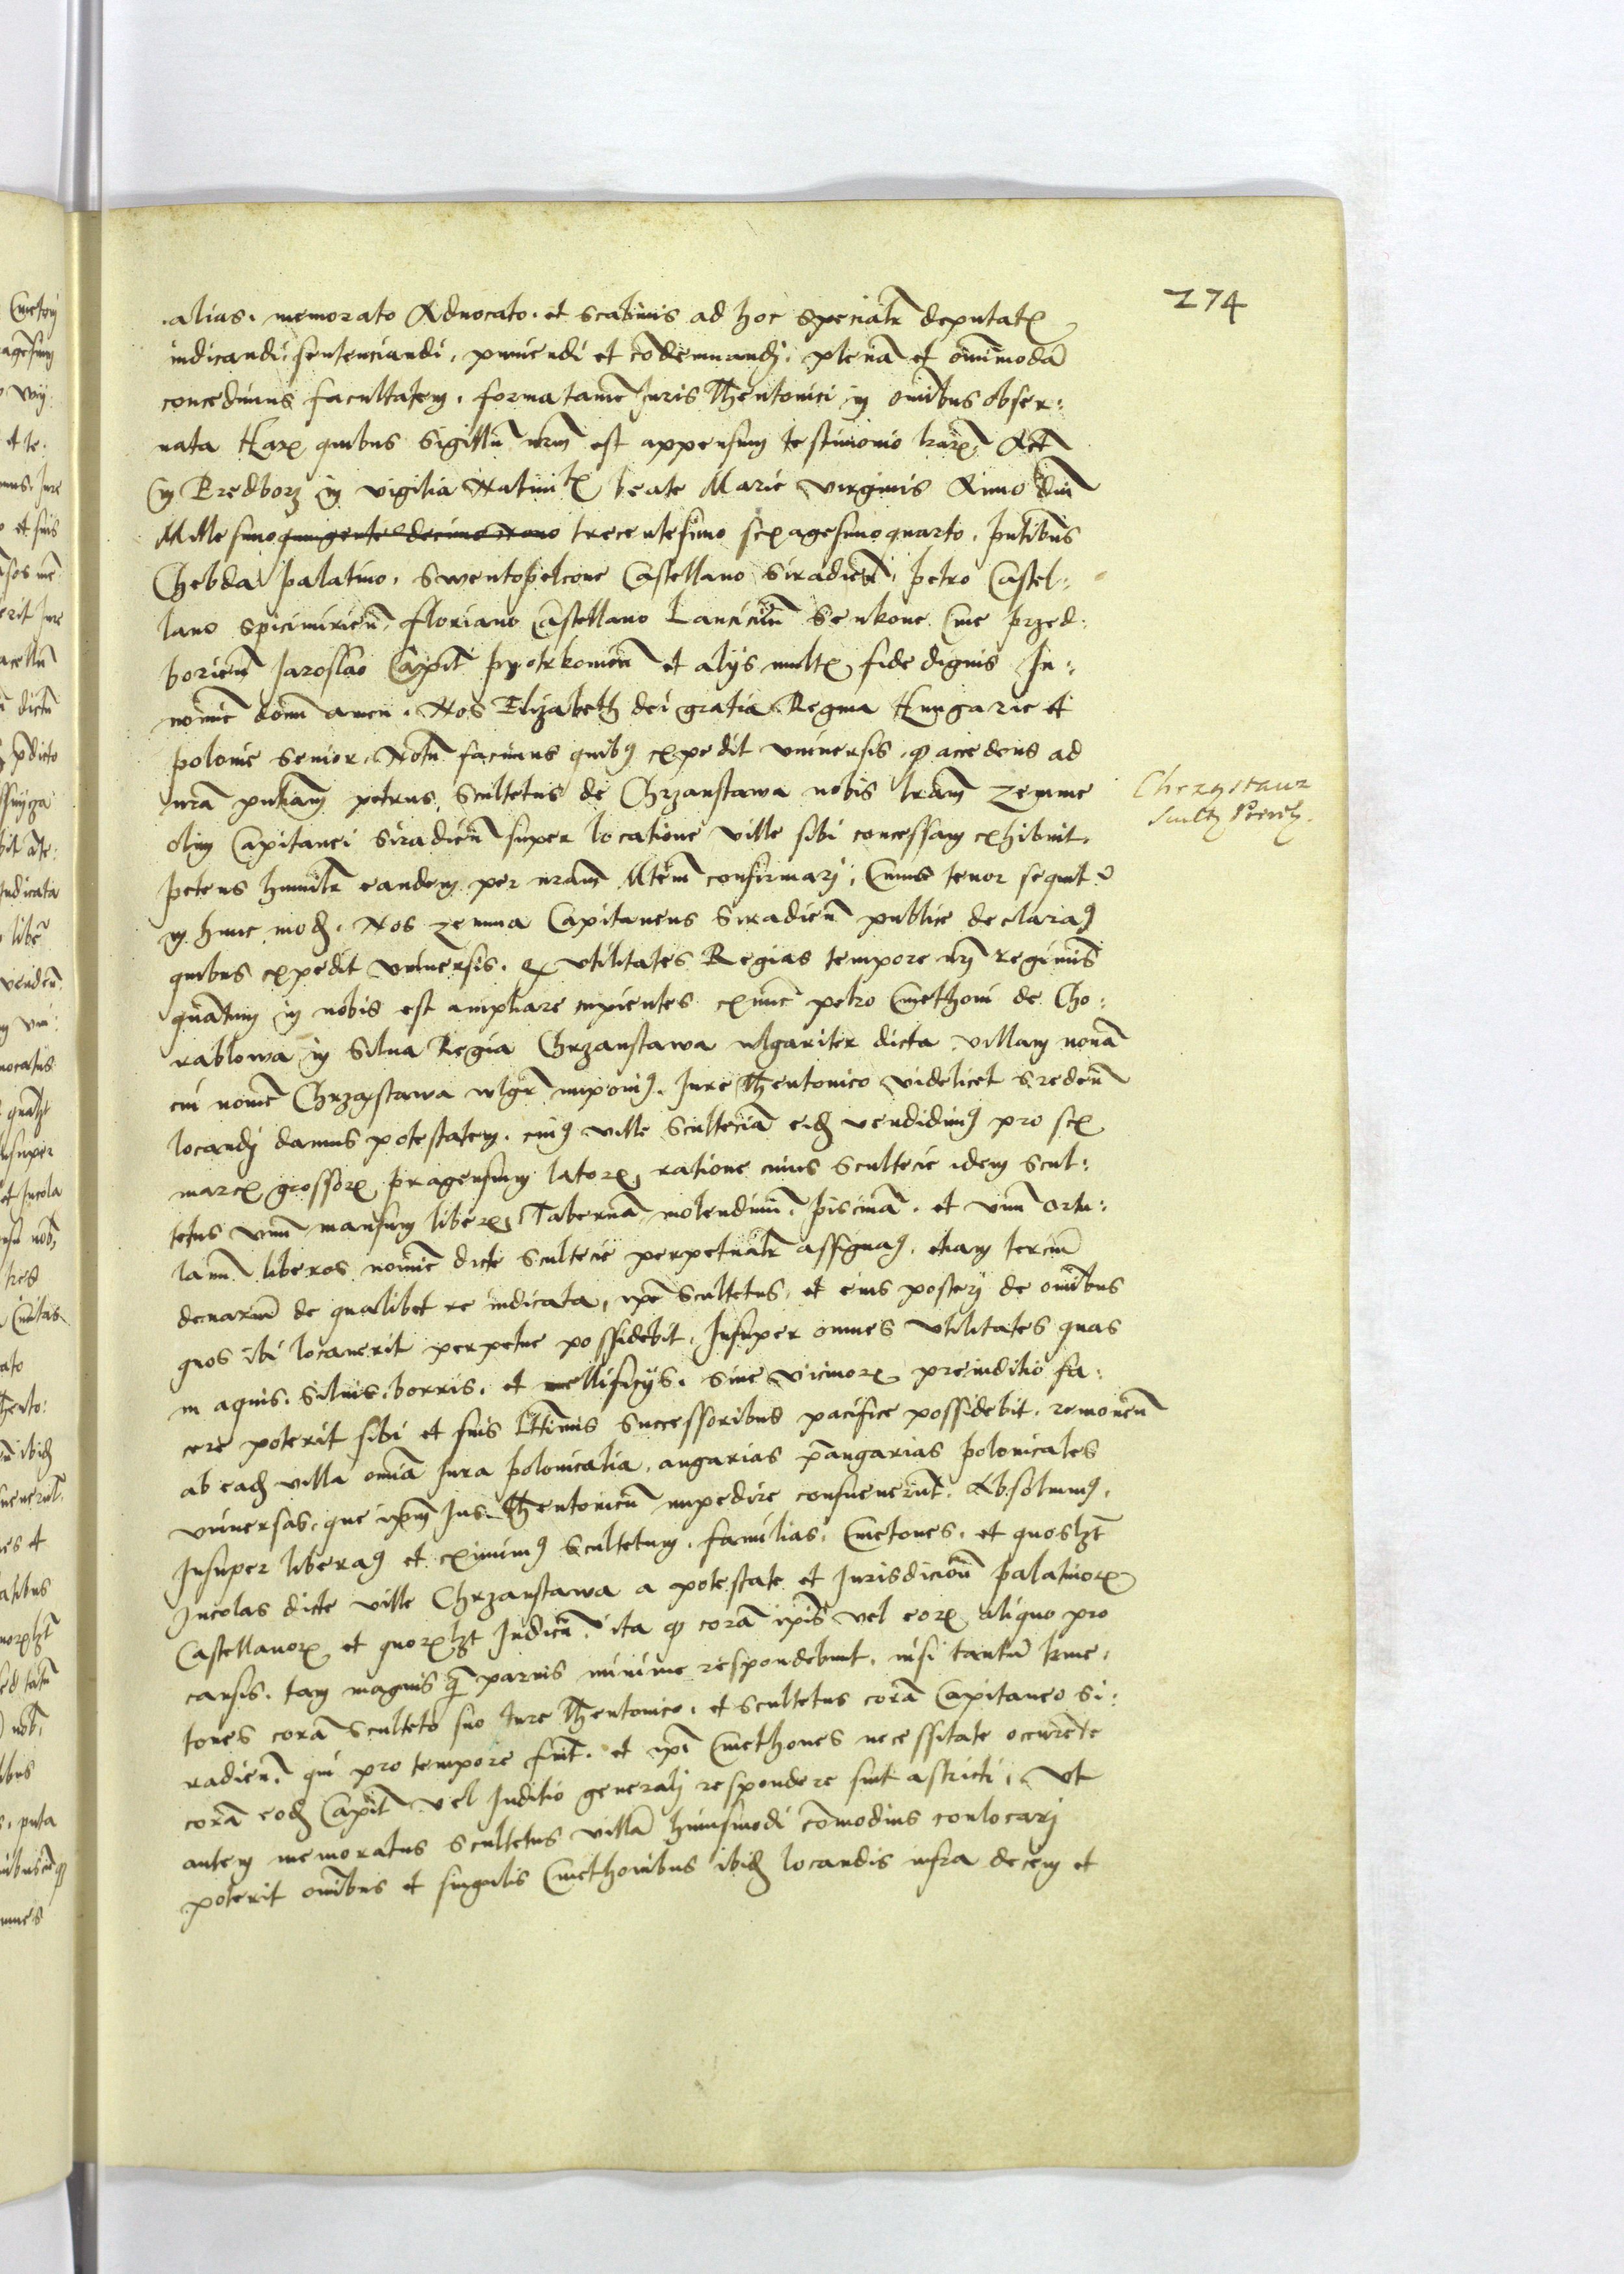 274
alias. memorato Aduocato. et scabinis ad hoc specialr̃ deputatꝭ
iudicandi, sentenciandi, puniendi et cõdemnandj. plenã et om̃imodã
concedimus facultatem. forma tamẽ Juris Theutonici in om̃ibus obser:
uata Harꝝ quibus Sigillũ nr̃m est appensum testimonio lr̃arꝝ Actũ
in Predborz in vigilia Natiuitꝭ beate Marie virginis Anno dnĩ
Millesimo quingentesᵒ decimo Nono trecentesimo sexagesimoquarto. pñtibus
Chebda palatino. Swentopelcone Castellano Siradieñ. petro Castel:
lano Spicimirieñ, floriano Castellano Lancicieñ Senkone Ciue przed:
borieñ Jaroslao Capitñ pyotrkouieñ et alijs multꝭ fide dignis In:
nomĩe domĩ amen. Nos Elizabeth dei gratia Regina Hungarie et
polonie Senior. Notũ facimus quibꝰ expedit vniuersis. ꝙ accedens ad
nr̃am pñtiam petrus, Scultetus de Chrzanstawa nobis lr̃am Zemme
olim Capitanei Siradieñ super locatione ville sibi concessam exhibuit.
petens humilr̃ eandem per nr̃am Mtẽm confirmarj, Cuius tenor sequitᵒ
in hunc modũ. Nos Zemma Capitaneus Siradieñ publice declaramꝰ
quibus expedit vniuersis. ꝙ vtilitates Regias tempore nr̃j regiminis
quãtum in nobis est ampliare cupientes exnũc petro Cmethoni de Cho:
rablowa in Silua Regia Chrzanstawa wlgariter dicta villam nouã
cui nomẽ Chrzastawa wlgr̃ imponimꝰ. Jure Theutonico videlicet Sredeñ
locandj damus potestatem. cuiꝰ ville Sculteciã eidẽ vendidimꝰ pro sex
marcꝭ grossorꝝ pragensium latorꝝ, ratione cuius Scultecie idem Scul:
tetus vnũ mansum liberꝝ, Tabernã, molendinũ. piscinã. et vnũ Ortu:
lanũ liberos nomĩe dicte Scultecie perpetualr̃ assignamꝰ. etiam terciũ
denariũ de qualibet re iudicata, ip̃e Scultetus, et eius posterj de om̃ibus
quos ibi locauerit perpetue possidebit. Insuper omnes vtilitates quas
in aquis. Siluis. borris. et mellificijs. sine vicinorꝝ preiuditio fa:
cere poterit sibi et suis Lttimis Successoribus pacifice possidebit. remoueñ
ab eadẽ villa om̃ia Jura polonicalia. angarias p̃angarias polonicales
vniuersas, que ip̃m Jus Theutonicũ impedire consueuerũt. Absoluimꝰ.
Insuper liberamꝰ et eximimꝰ Scultetum. familias. Cmetones. et quoslꝫt
Incolas dicte ville Chrzanstawa a potestate et Jurisdiciõe palatinorꝝ
Castellanorꝝ et quorꝝlꝫt Judicũ. ita ꝙ corã ip̃is vel eorꝝ aliquo pro
causis. tam magnis q̃ paruis minime respondebunt. nisi tantũ kme:
tones corã Sculteto suo Jure Theutonico. et Scultetus corã Capitaneo Si:
radieñ. qui pro tempore fũit. et ip̃i Cmethones necessitate occurẽte
corã eodẽ Capitñ vel Juditio generalj respondere sint astricti, vt
autem memoratus Scultetus villã huiusmodi cõmodius conlocarj
poterit om̃ibus et singulis Cmethonibus ibidẽ locandis infra decem et
Chrzqstaur